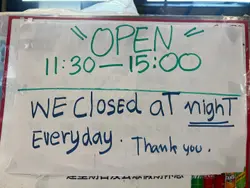 "OPEN"
11:30—15:00
WE Closed aT nighT
Everyday. Thank you.